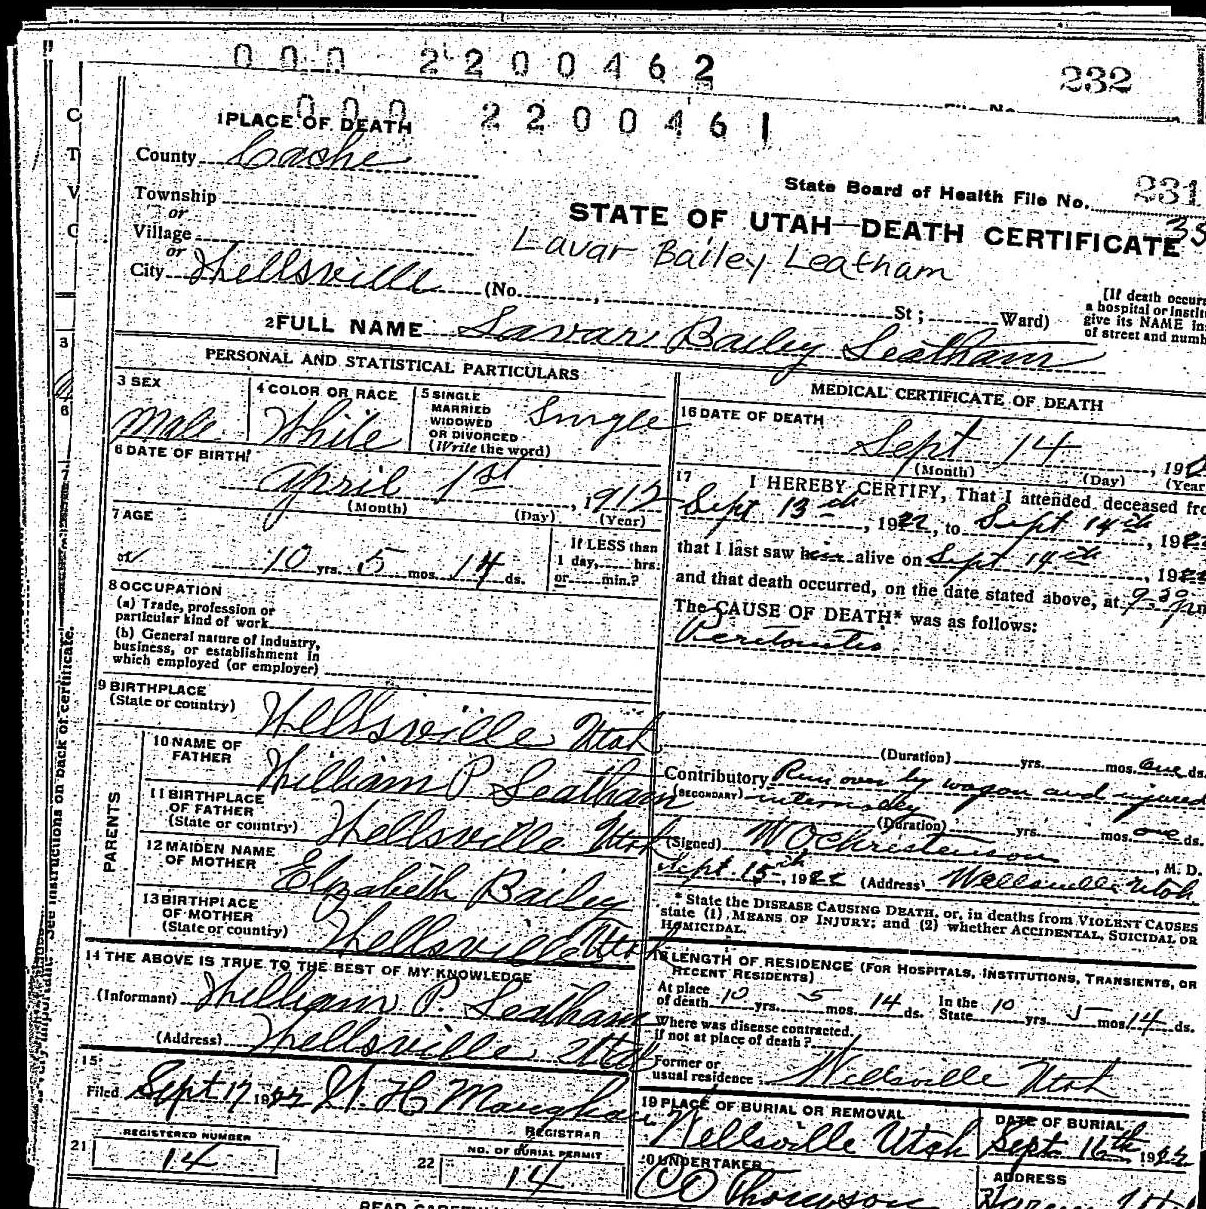 000 2200462
232
File No.
000 2200461
1 PLACE OF DEATH
County Cache
State Board of Health File No. 231
35
Township
or
Village
or
City Wellsville (No. , St ; Ward)
STATE OF UTAH—DEATH CERTIFICATE
Lavar Bailey Leatham
[If death occurr
a hospital or institu
give its NAME ins
of street and numb
2 FULL NAME Lavar Bailey Leatham
PERSONAL AND STATISTICAL PARTICULARS
3 SEX
Male
4 COLOR OR RACE
White
5 SINGLE
MARRIED
WIDOWED
OR DIVORCED
(Write the word)
Single
6 DATE OF BIRTH
April 1st, 1912
(Month) (Day) (Year)
7 AGE
10 yrs. 5 mos. 14 ds.
If LESS than
1 day, hrs.
or min.?
8 OCCUPATION
(a) Trade, profession or
particular kind of work
(b) General nature of industry,
business, or establishment in
which employed (or employer)
9 BIRTHPLACE
(State or country)
Wellsville Utah
PARENTS
10 NAME OF
FATHER
William P. Leatham
11 BIRTHPLACE
OF FATHER
(State or country)
Wellsville Utah
12 MAIDEN NAME
OF MOTHER
Elzabeth Bailey
13 BIRTHPLACE
OF MOTHER
(State or country)
Wellsville Utah
14 THE ABOVE IS TRUE TO THE BEST OF MY KNOWLEDGE
(Informant) William P. Leatham
(Address) Wellsville Utah
15
Filed Sept 17 1922 W H Maughan
REGISTRAR
21 REGISTERED NUMBER
14
22 NO. OF BURIAL PERMIT
14
MEDICAL CERTIFICATE OF DEATH
16 DATE OF DEATH
Sept 14, 192
(Month) (Day) (Year
17 I HEREBY CERTIFY, That I attended deceased fro
Sept 13th, 1922, to Sept 14th, 192
that I last saw him alive on Sept 14th, 1922
and that death occurred, on the date stated above, at 9-30 pm
The CAUSE OF DEATH* was as follows:
(Duration) yrs. mos. one ds.
Contributory Run over by wagon and injured
(SECONDARY) internaley
(Duration) yrs. mos. one ds.
(Signed) W O Christenson, M. D.
Sept. 15th, 1922 (Address) Wellsville Utah
* State the DISEASE CAUSING DEATH, or, in deaths from VIOLENT CAUSES
state (1) MEANS OF INJURY; and (2) whether ACCIDENTAL, SUICIDAL OR
HOMICIDAL.
18 LENGTH OF RESIDENCE (FOR HOSPITALS, INSTITUTIONS, TRANSIENTS, OR
RECENT RESIDENTS)
At place
of death 10 yrs. 5 mos. 14 ds. In the
State 10 yrs. 5 mos 14 ds.
Where was disease contracted,
If not at place of death?
Former or
usual residence Wellsville Utah
19 PLACE OF BURIAL OR REMOVAL
Wellsville Utah
DATE OF BURIAL
Sept. 16th 1922
20 UNDERTAKER
O O Thompson
ADDRESS
See instructions on back of certificate.